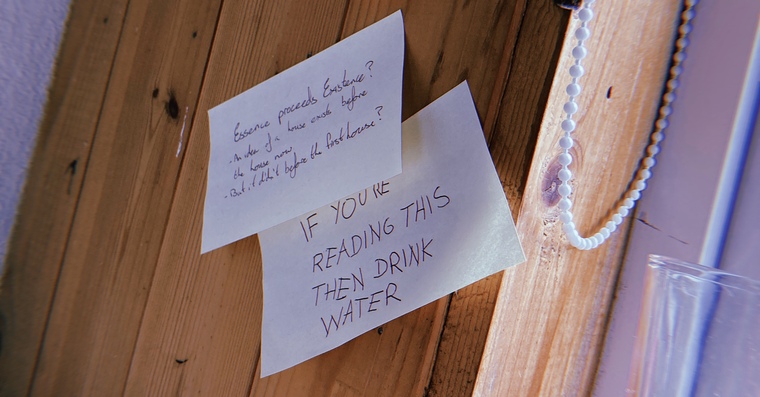 Essence proceeds Existence?
- An idea of a house exists before
the house now
- But it didn't before the first house?
IF YOU'RE
READING THIS
THEN DRINK
WATER